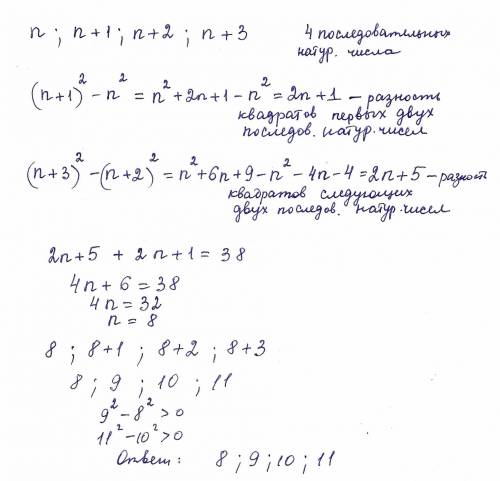 n ; n+1 ; n+2 ; n+3 4 последовательных
натур. числа
(n+1)² - n² = n² + 2n + 1 - n² = 2n + 1 – разность
квадратов первых двух
послед. натур. чисел
(n+3)² - (n+2)² = n² + 6n + 9 - n² - 4n - 4 = 2n + 5 – разность
квадратов следующих
двух последов. натур. чисел
2n + 5 + 2n + 1 = 38
4n + 6 = 38
4n = 32
n = 8
8 ; 8+1 ; 8+2 ; 8+3
8 ; 9 ; 10 ; 11
9² - 8² > 0
11² - 10² > 0
Ответ: 8 ; 9 ; 10 ; 11